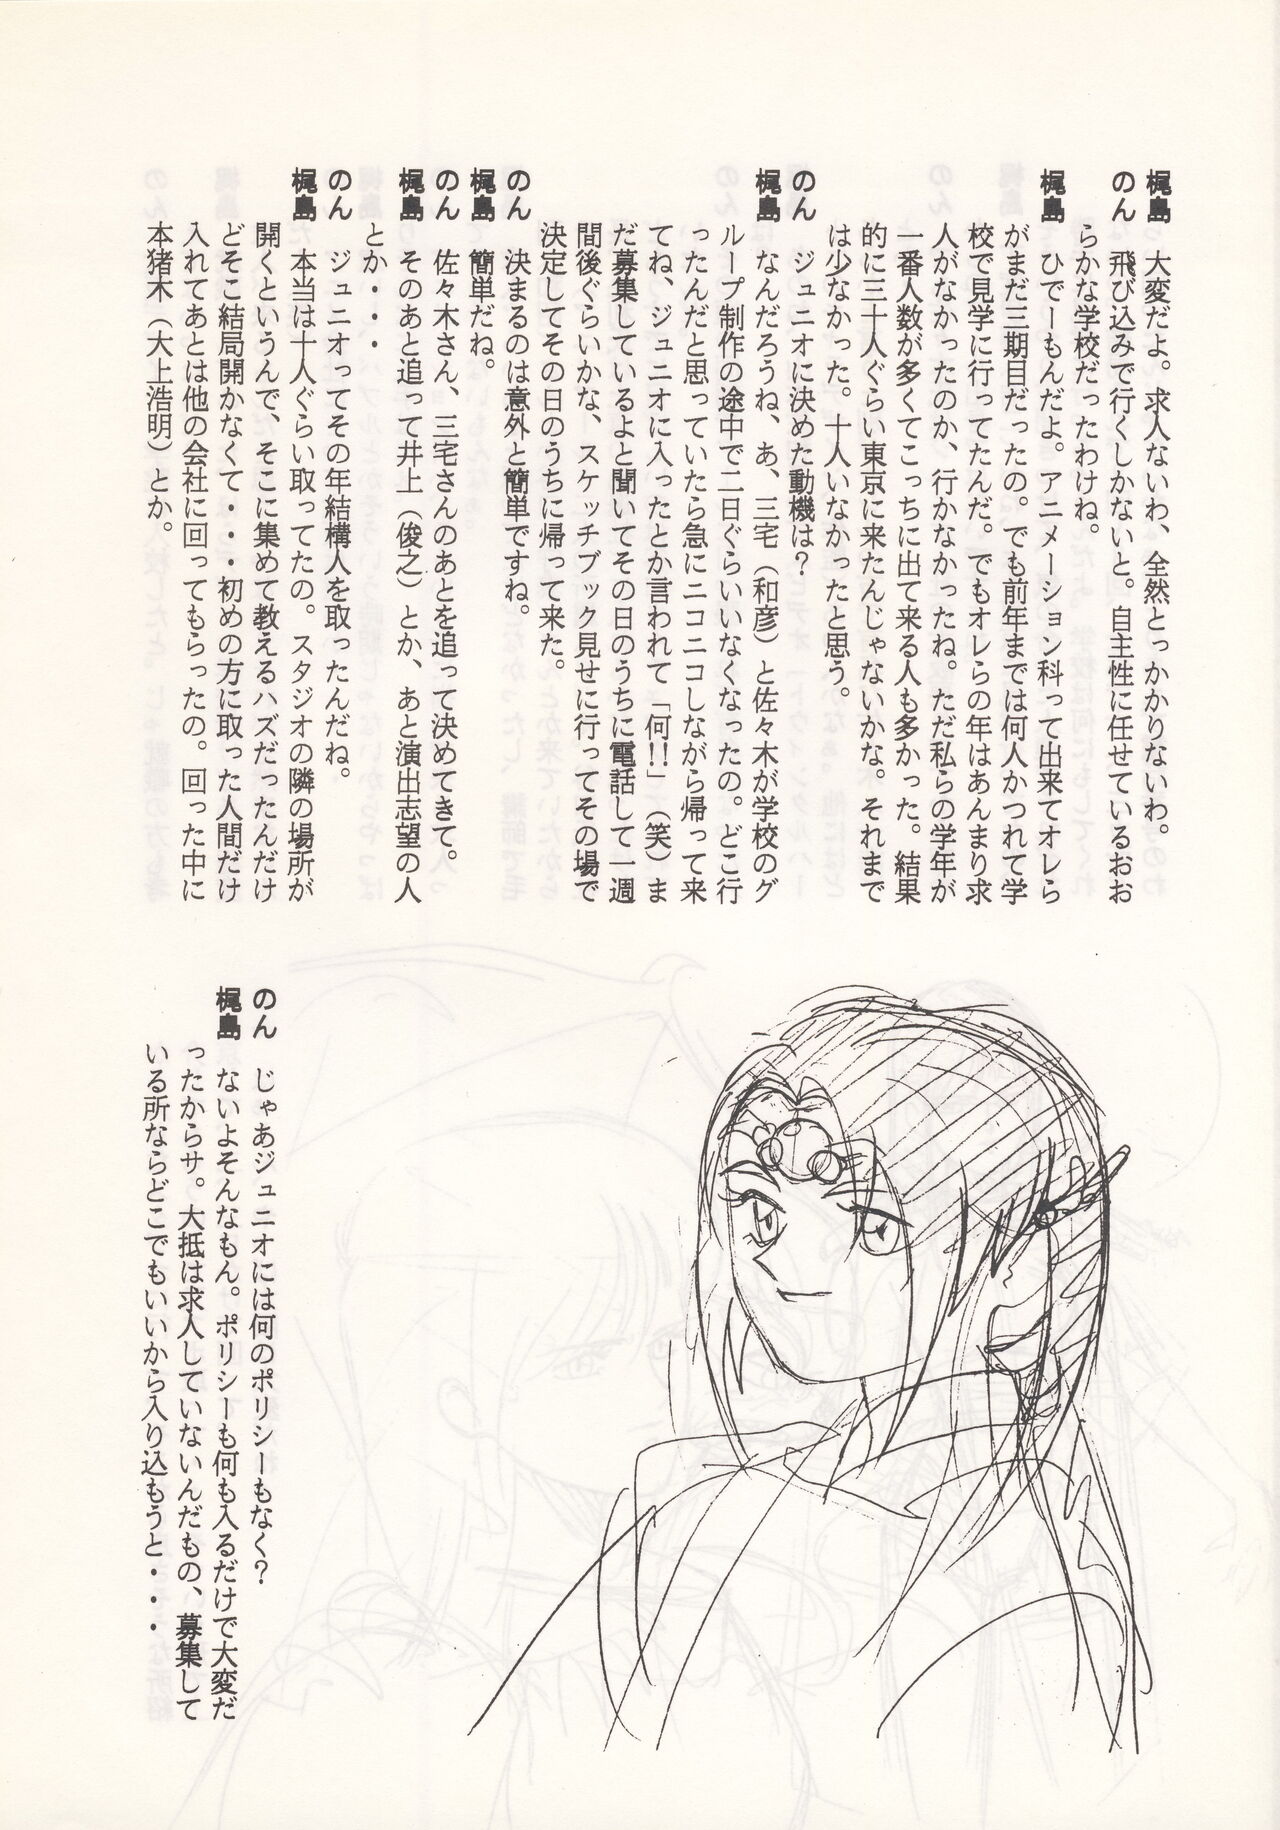 梶島　大変だよ。求人ないわ、全然とっかかりないわ。
のん　飛び込みで行くしかないと。自主性に任せているおお
らかな学校だったわけね。
梶島　ひでーもんだよ。アニメーション科って出来てオレら
がまだ三期目だったの。でも前年までは何人かつれて学
校で見学に行ってたんだ。でもオレらの年はあんまり求
人がなかったのか、行かなかったね。ただ私らの学年が
一番人数が多くてこっちに出て来る人も多かった。結果
的に三十人ぐらい東京に来たんじゃないかな。それまで
は少なかった。十人いなかったと思う。
のん　ジュニオに決めた動機は？
梶島　なんだろうね、あ、三宅（和彦）と佐々木が学校のグ
ループ制作の途中で二日ぐらいいなくなったの。どこ行
ったんだと思っていたら急にニコニコしながら帰って来
てね、ジュニオに入ったとか言われて「何!!」（笑）ま
だ募集しているよと聞いてその日のうちに電話して一週
間後ぐらいかな、スケッチブック見せに行ってその場で
決定してその日のうちに帰って来た。
のん　決まるのは意外と簡単ですね。
梶島　簡単だね。
のん　佐々木さん、三宅さんのあとを追って決めてきて。
梶島　そのあと追って井上（俊之）とか、あと演出志望の人
とか・・・
のん　ジュニオってその年結構人を取ったんだね。
梶島　本当は十人ぐらい取ってたの。スタジオの隣の場所が
開くというんで、そこに集めて教えるハズだったんだけ
どそこ結局開かなくて・・・初めの方に取った人間だけ
入れてあとは他の会社に回ってもらったの。回った中に
本猪木（大上浩明）とか。
のん　じゃあジュニオには何のポリシーもなく？
梶島　ないよそんなもん。ポリシーも何も入るだけで大変だ
ったからサ。大抵は求人していないんだもの、募集して
いる所ならどこでもいいから入り込もうと・・・